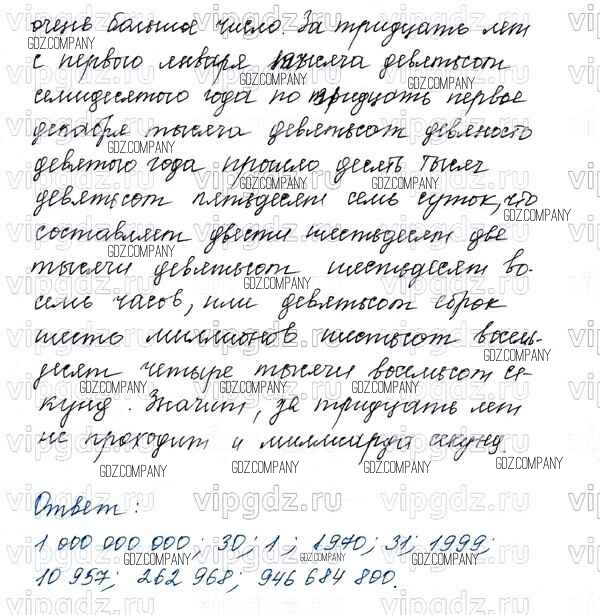 очень большое число. За тридцать лет
с первого января тысяча девятьсот
семидесятого года по тридцать первое
декабря тысяча девятьсот девяносто
девятого года прошло десять тысяч
девятьсот пятьдесят семь суток, что
составляет двести шестьдесят две
тысячи девятьсот шестьдесят во-
семь часов, или девятьсот сорок
шесть миллионов шестьсот восемь-
десят четыре тысячи восемьсот се-
кунд. Значит, за тридцать лет
не проходит и миллиарда секунд.
Ответ:
1 000 000 000; 30; 1; 1970; 31; 1999;
10 957; 262 968; 946 684 800.
GDZ.COMPANY
vipgdz.ru